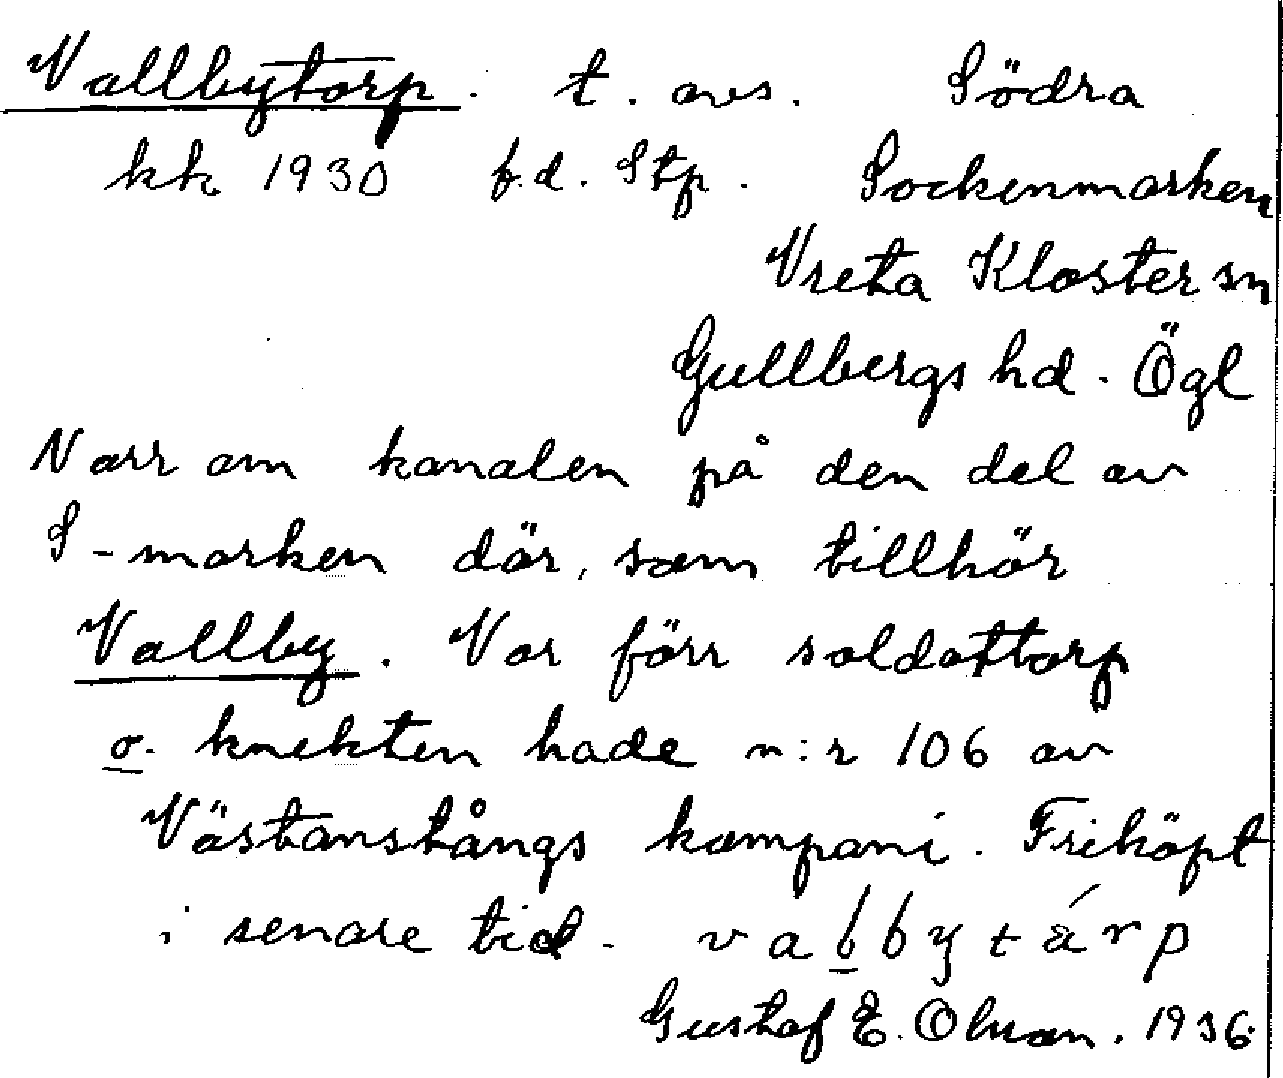 Vallbytorp. t. avs. Södra
kk 1930 f.d. Stp. Sockenmarken
Vreta Kloster sn
Gullbergs hd. Ögl
Norr om kanalen på den del av
S-marken där, som tillhör
Vallby. Var förr soldattorp
o. knekten hade n:r 106 av
Västanstångs kompani. Friköpt
i senare tid.
Gustaf E. Olman. 1936.